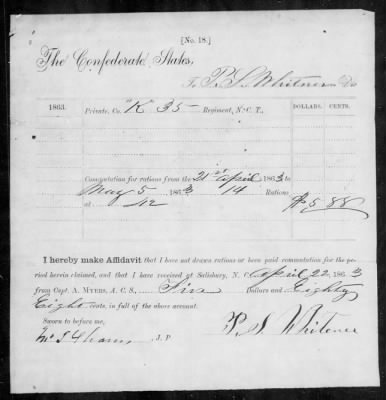 [No. 18.]
The Confederate States,
To P. S. Whitener Dr
1863. Private, Co. "K" 35 Regiment, N. C. T., DOLLARS. CENTS.
Commutation for rations from the 21st April 1863
May 5 1863 14 Rations
at 42 $5 88
I hereby make Affidavit that I have not drawn rations or been paid commutation for the pe-
riod herein claimed, and that I have received at Salisbury, N. C. April 22 1863
from Capt. A. MYERS, A. C. S., Five Dollars and Eighty
Eight cents, in full of the above account.
Sworn to before me,
J. P. P. S. Whitener